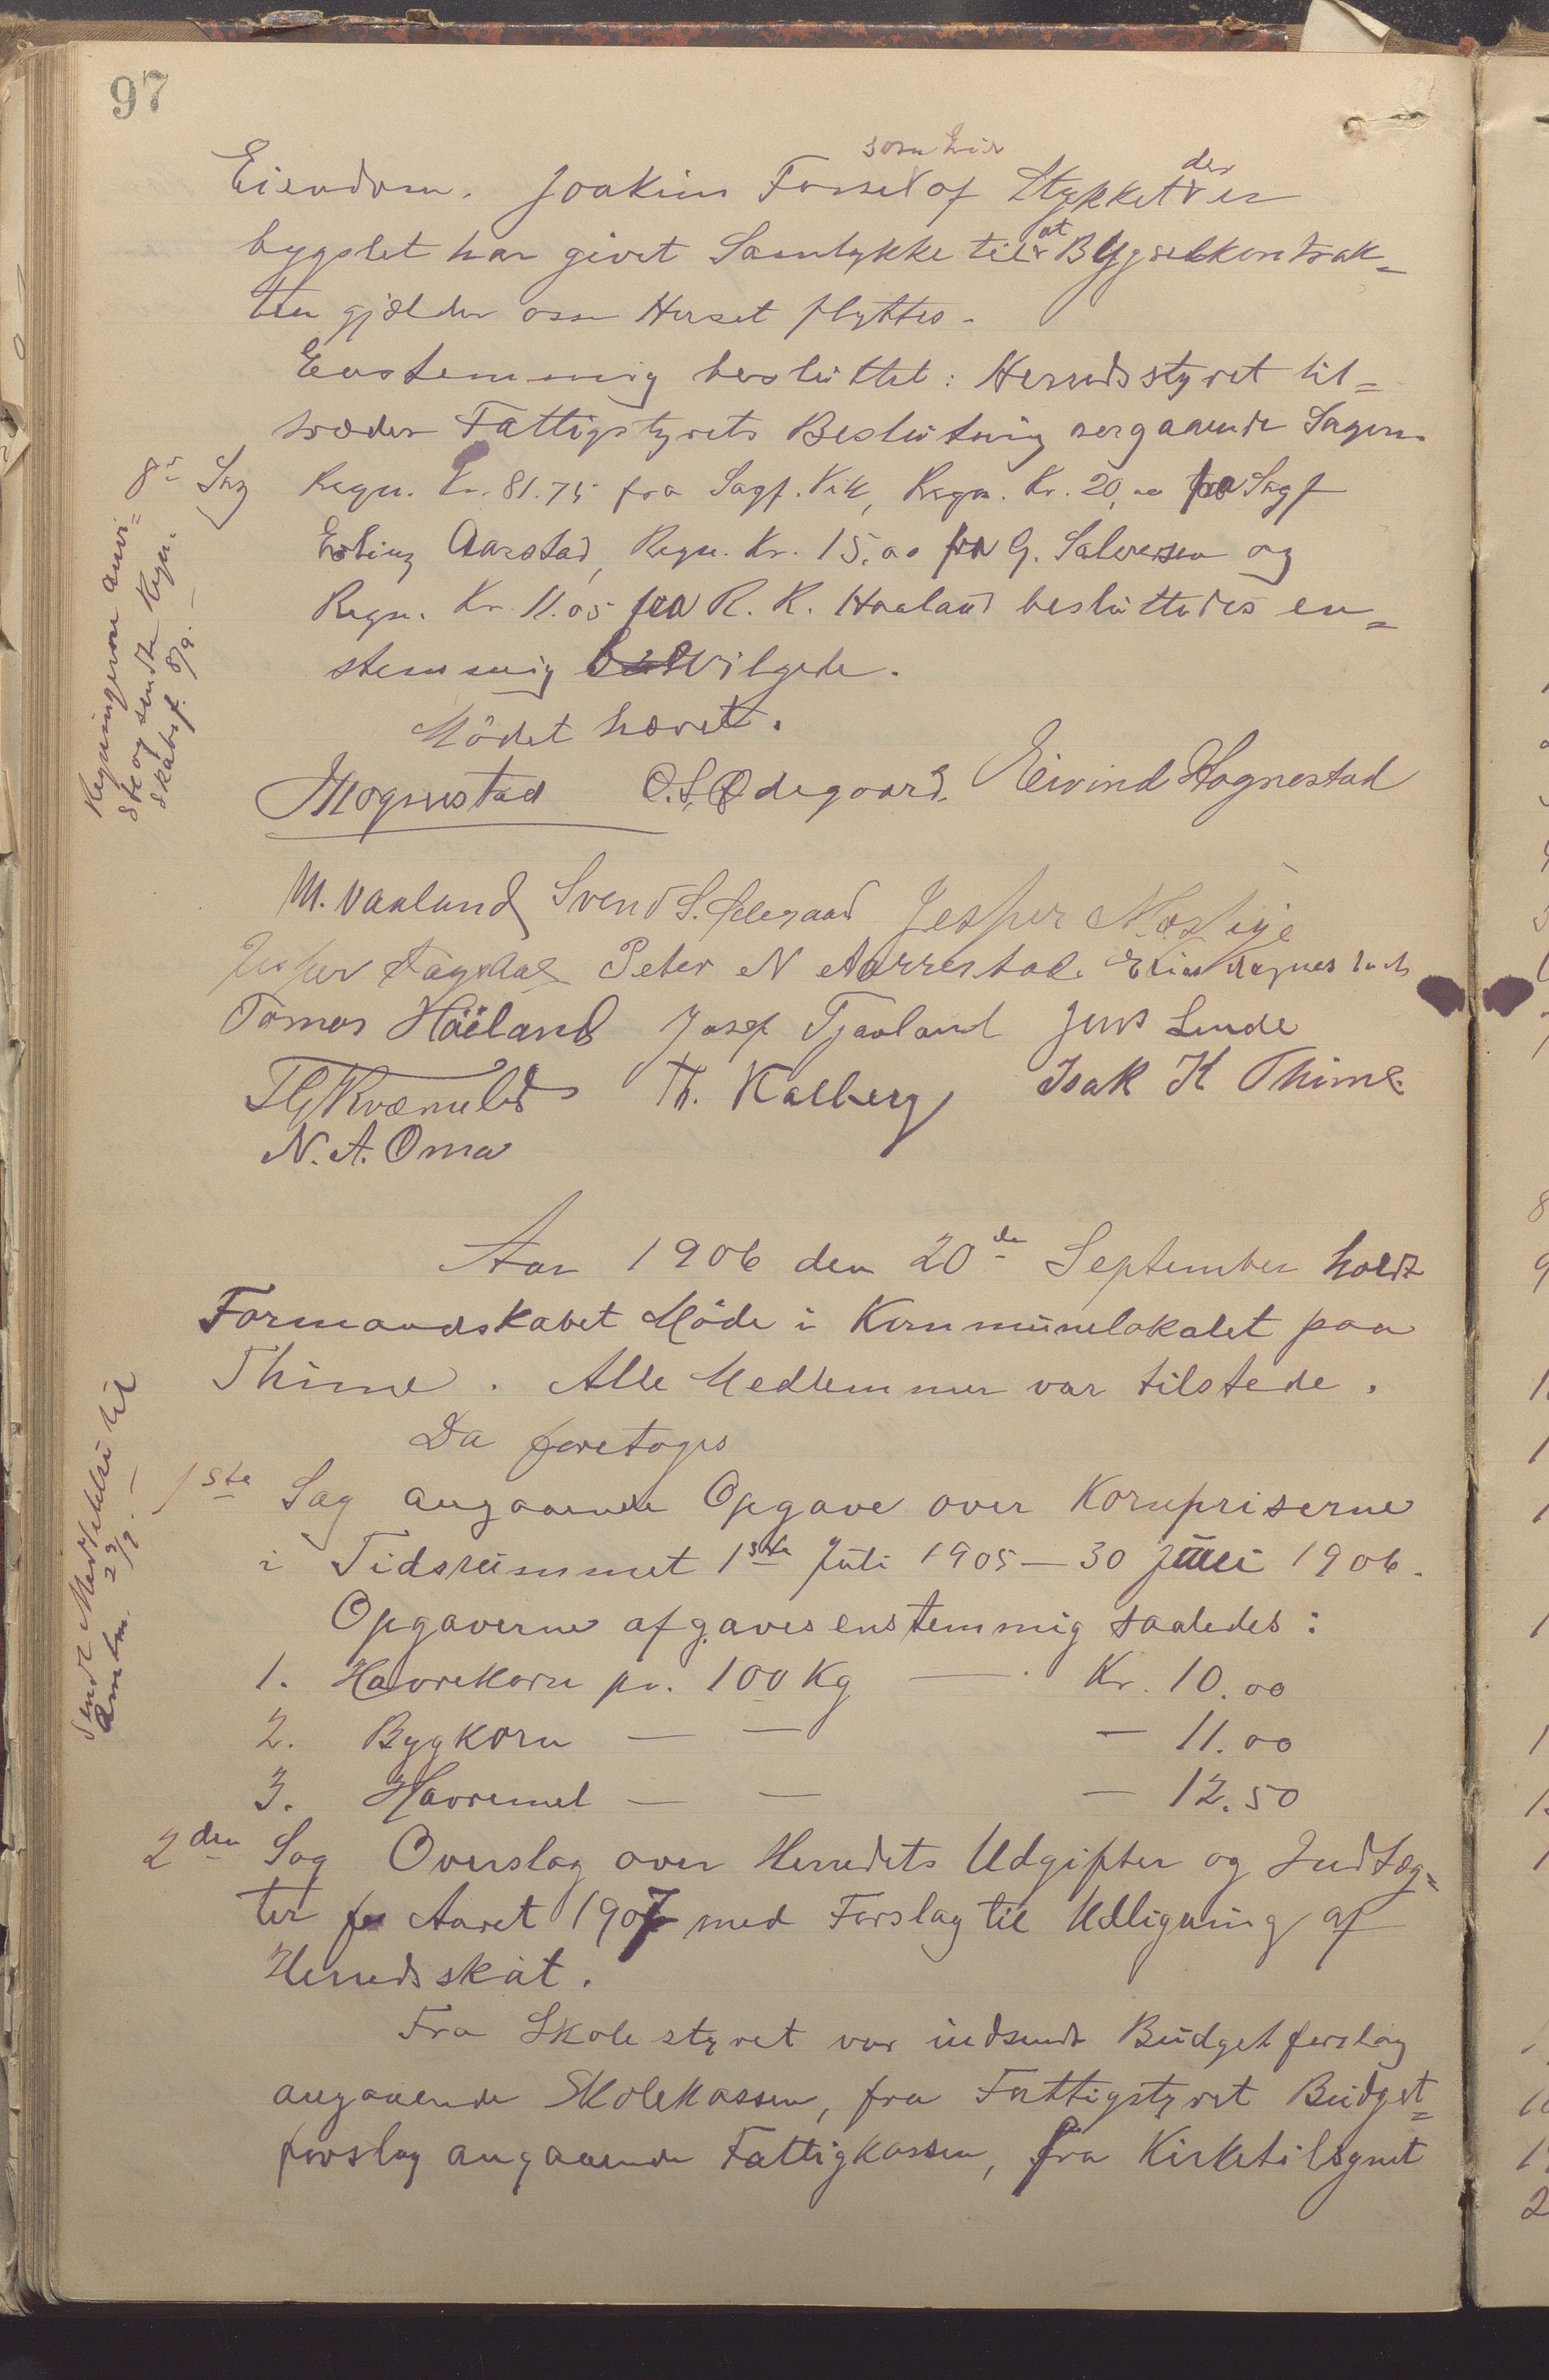 97
Eiendom. Joakim Fosse som Eier af Stykket der er
bygslet har givet Samtykke til at Bygselkontrak-
ten gjælder om Huset flyttes.
Enstemmig besluttet: Herredsstyret til-
træder Fattigstyrets Beslutning angaaende Sagen.
8de Sag Regn. Kr. 81.75 fra Sagf. Vik, Regn. Kr. 20,00 fra Sagf
Erling Aarstad, Regn. Kr. 15.00 fra G. Salvesen og
Regn. Kr. 11.05 fra R. K. Haaland besluttedes en-
stemmig bevilgede.
Regningerne anvi-
ste og sendte Regn-
skabsf. 8/9.
Mödet hævet.
Hognestad O.S. Ødegaard. Eivind Hognestad
M. Vaaland Svend S. Ødegaard Jesper Næsheje
Jesper Fagedal Peter N Aarrestad. Elias Hognestad
Tomas Håland Josef Tjaaland Jens Lende
Th. Kalberg Isak K Thime.
N. A. Oma
Aar 1906 den 20de September holdt
Formandskabet Möde i Kommunelokalet paa
Thime. Alle Medlemmer var tilstede.
Da foretoges
1ste Sag angaaende Opgave over Kornpriserne
i Tidsrummet 1ste Juli 1905 — 30 Juni 1906.
Opgaverne afgaves enstemmig saaledes:
1. Havrekorn pr. 100 Kg — Kr. 10.00
2. Bygkorn — — — 11.00
3. Havremel — — — 12.50
Sendt Meddelelse til
Amtm. 23/9.
2den Sag Overslag over Herredets Udgifter og Indtæg-
ter for Aaret 1907 med Forslag til Udligning af
Herredsskat.
Fra Skolestyret var indsendt Budgetforslag
angaaende Skolekassen, fra Fattigstyret Budget-
forslag angaaende Fattigkassen, fra Kirketilsynet